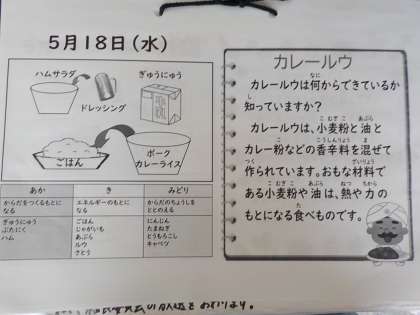 5月18日(水)
ハムサラダ
ドレッシング
ぎゅうにゅう
牛乳
ごはん
ポーク
カレーライス
あか き みどり
からだをつくるもとに
なる
エネルギーのもとに
なる
からだのちょうしを
ととのえる
ぎゅうにゅう
ぶたにく
ハム
ごはん
じゃがいも
あぶら
ルウ
さとう
にんじん
たまねぎ
とうもろこし
キャベツ
カレールウ
なに
カレールウは何からできているか
し
知っていますか?
こむぎこ あぶら
カレールウは、小麦粉と油と
こ こうしんりょう ま
カレー粉などの香辛料を混ぜて
つく ざいりょう
作られています。おもな材料で
こむぎこ あぶら ねつ ちから
ある小麦粉や油は、熱や力の
た
もとになる食べものです。